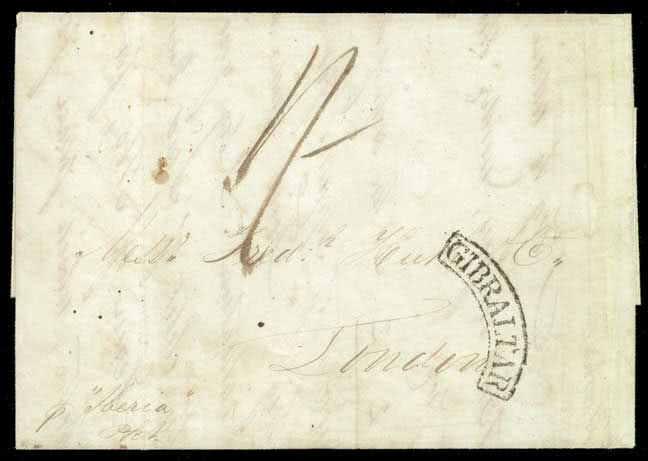 1/-
Messrs Fredk Huth & Co
GIBRALTAR
London
p "Iberia"
Pkt